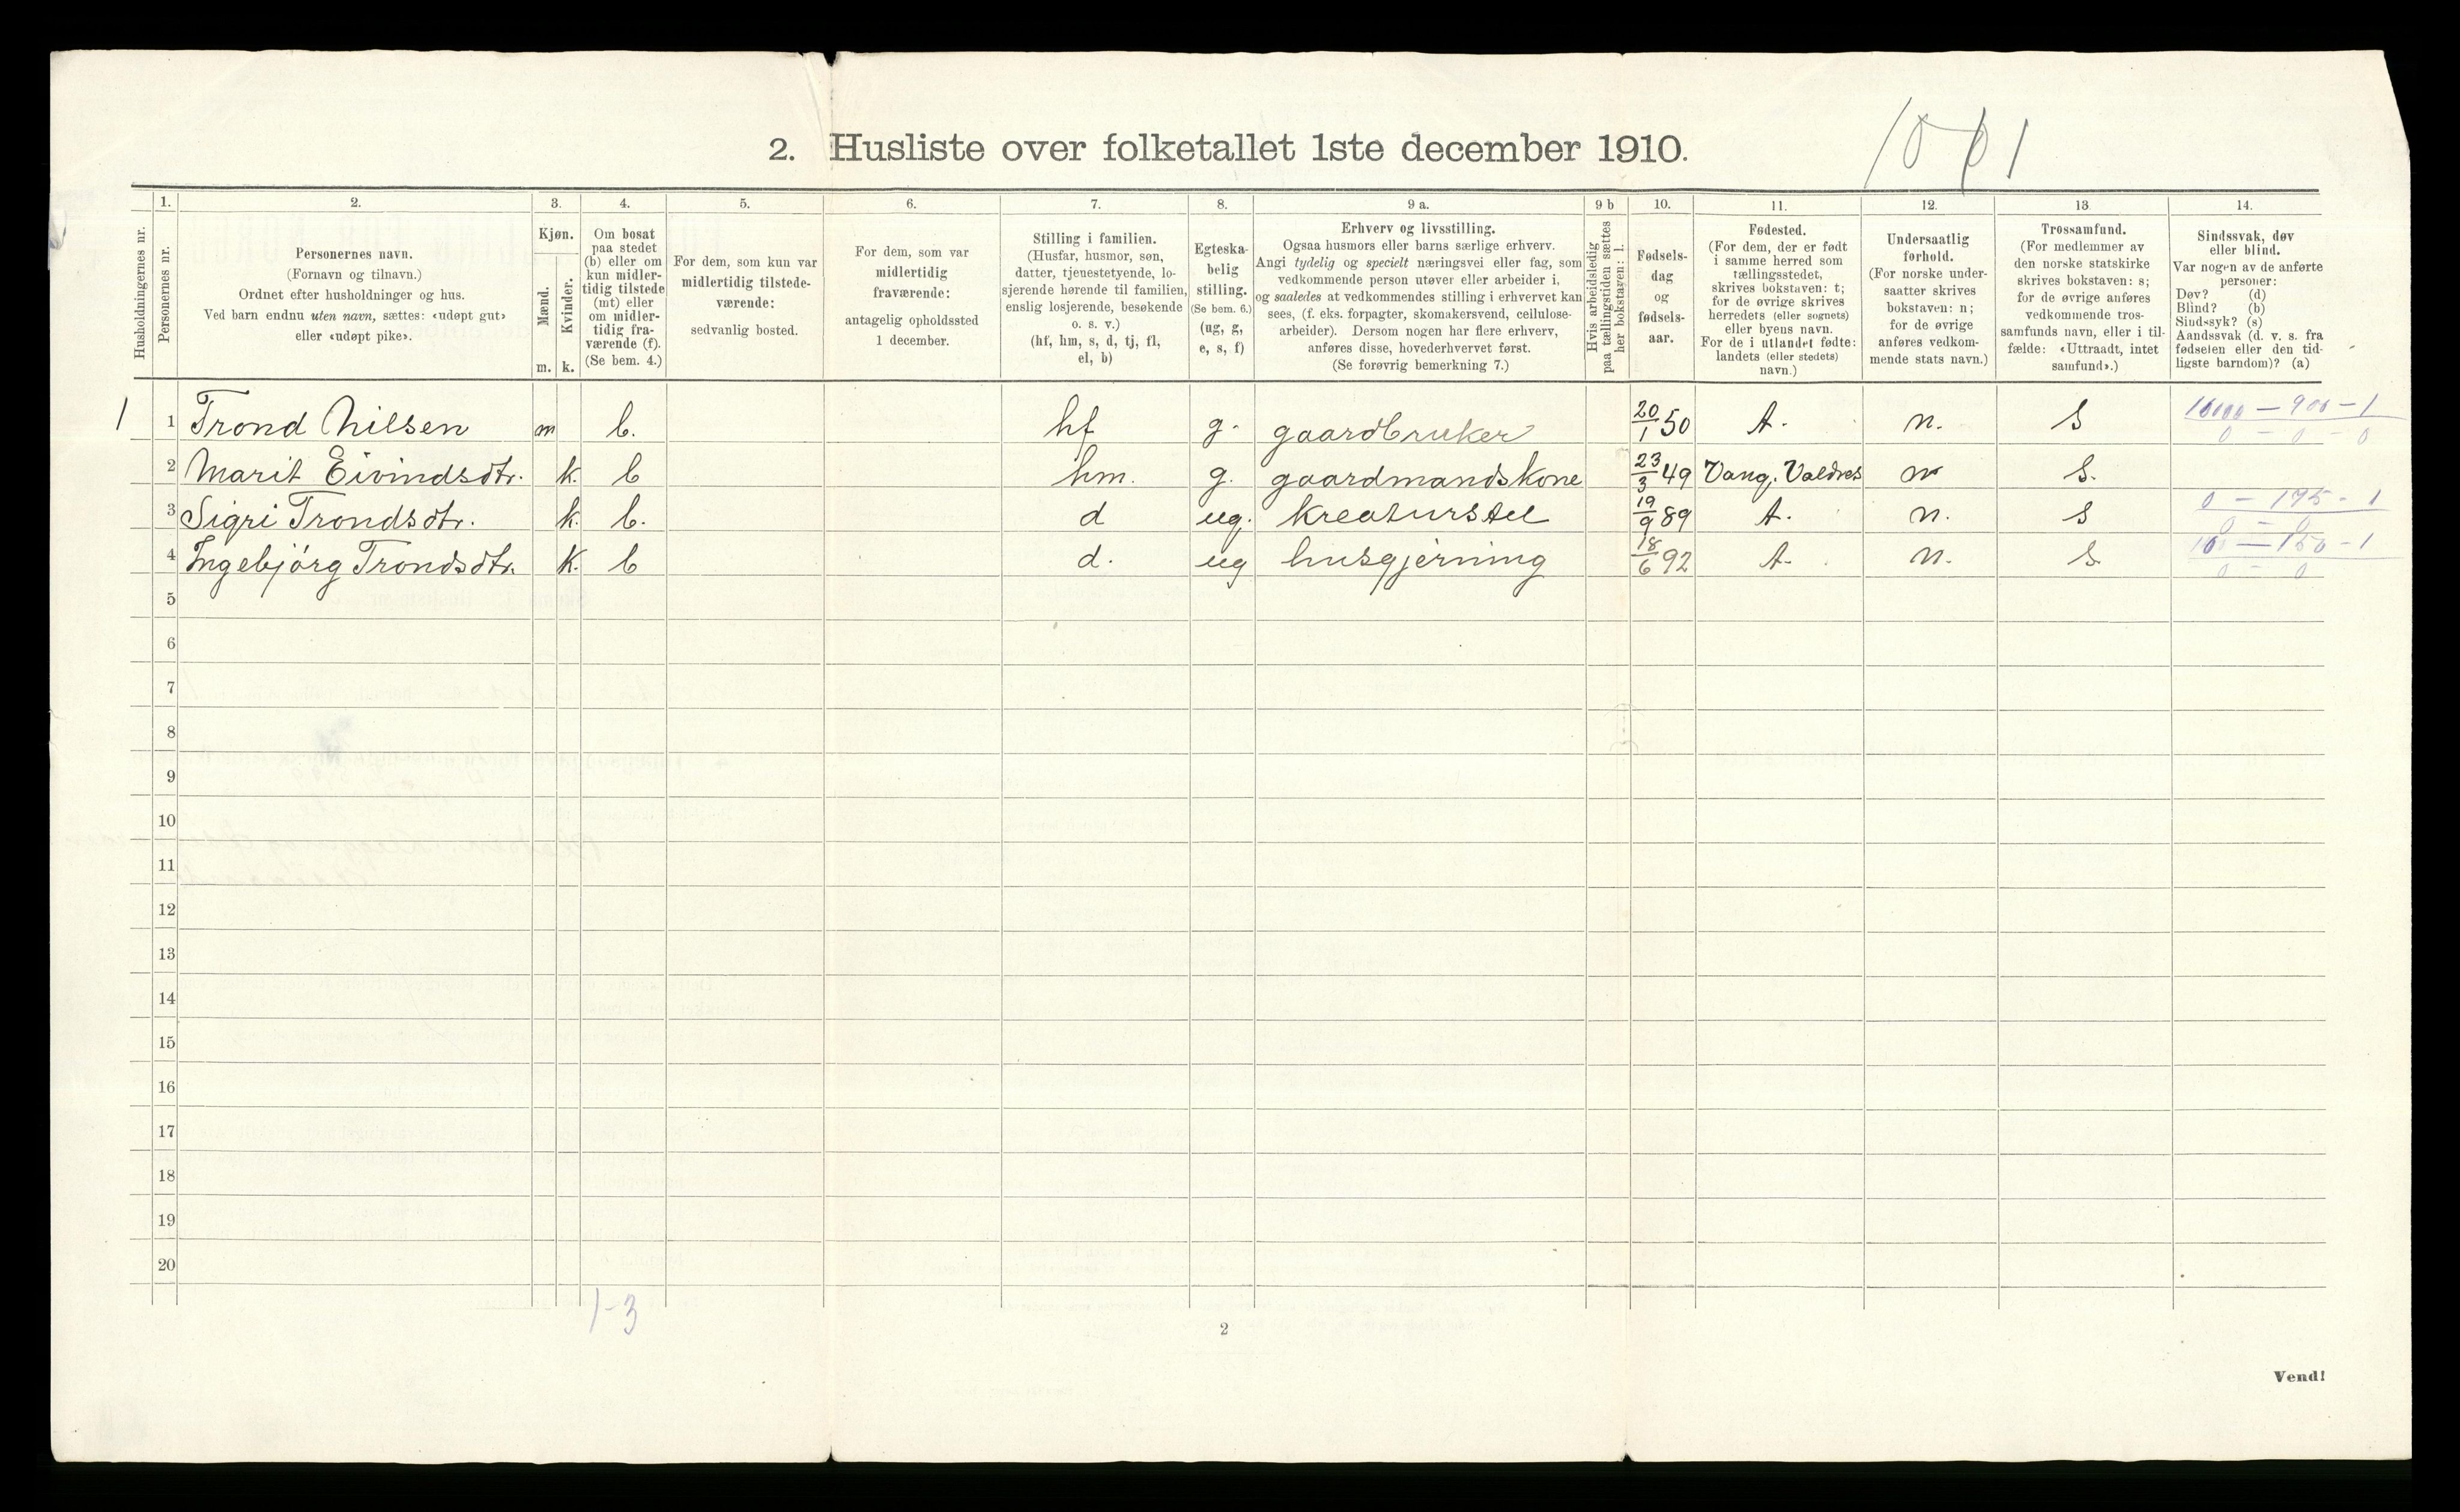 2. Husliste over folketallet 1ste december 1910.
Husholdningernes nr.
1.
Personernes nr.
2.
Personernes navn.
(Fornavn og tilnavn.)
Ordnet efter husholdninger og hus.
Ved barn endnu uten navn, sættes: «udøpt gut»
eller «udøpt pike».
3.
Kjøn.
Mænd.
Kvinder.
m.
k.
4.
Om bosat
paa stedet
(b) eller om
kun midler-
tidig tilstede
(mt) eller
om midler-
tidig fra-
værende (f).
(Se bem. 4.)
5.
For dem, som kun var
midlertidig tilstede-
værende:
sedvanlig bosted.
6.
For dem, som var
midlertidig
fraværende:
antagelig opholdssted
1 december.
7.
Stilling i familien.
(Husfar, husmor, søn,
datter, tjenestetyende, lo-
sjerende hørende til familien,
enslig losjerende, besøkende
o. s. v.)
(hf, hm, s, d, tj, fl,
el, b)
8.
Egteska-
belig
stilling.
(Se bem. 6.)
(ug, g,
e, s, f)
9 a.
Erhverv og livsstilling.
Ogsaa husmors eller barns særlige erhverv.
Angi tydelig og specielt næringsvei eller fag, som
vedkommende person utøver eller arbeider i,
og saaledes at vedkommendes stilling i erhvervet kan
sees, (f. eks. forpagter, skomakersvend, cellulose-
arbeider). Dersom nogen har flere erhverv,
anføres disse, hovederhvervet først.
(Se forøvrig bemerkning 7.)
9 b
Hvis arbeidsledig
paa tællingstiden sættes
her bokstaven: l.
10.
Fødsels-
dag
og
fødsels-
aar.
11.
Fødested.
(For dem, der er født
i samme herred som
tællingsstedet,
skrives bokstaven: t;
for de øvrige skrives
herredets (eller sognets)
eller byens navn.
For de i utlandet fødte:
landets (eller stedets)
navn.)
12.
Undersaatlig
forhold.
(For norske under-
saatter skrives
bokstaven: n;
for de øvrige
anføres vedkom-
mende stats navn.)
13
Trossamfund.
(For medlemmer av
den norske statskirke
skrives bokstaven: s;
for de øvrige anføres
vedkommende tros-
samfunds navn, eller i til-
fælde: «Uttraadt, intet
samfund».)
14.
Sindssvak, døv
eller blind.
Var nogen av de anførte
personer:
Døv? (d)
Blind? (b)
Sindssyk? (s)
Aandssvak (d. v. s. fra
fødselen eller den tid-
ligste barndom)? (a)
1 1 Trond Nilsen m b. hf g. gaardbruker 20/1 50 t. n. S
2 Marit Eivindsdtr. k. b hm. g. gaardmandskone 23/3 49 Vang, Valdres n S.
0 - 175 - 1
3 Sigri Trondsdtr. k. b. d ug. kreaturstel 19/9 89 t. n. S
4 Ingebjørg Trondsdtr. k. b d. ug husgjerning 18/6 92 t. n. S.
5
6
7
8
9
10
11
12
13
14
15
16
17
18
19
20
1-3
2
Vend!